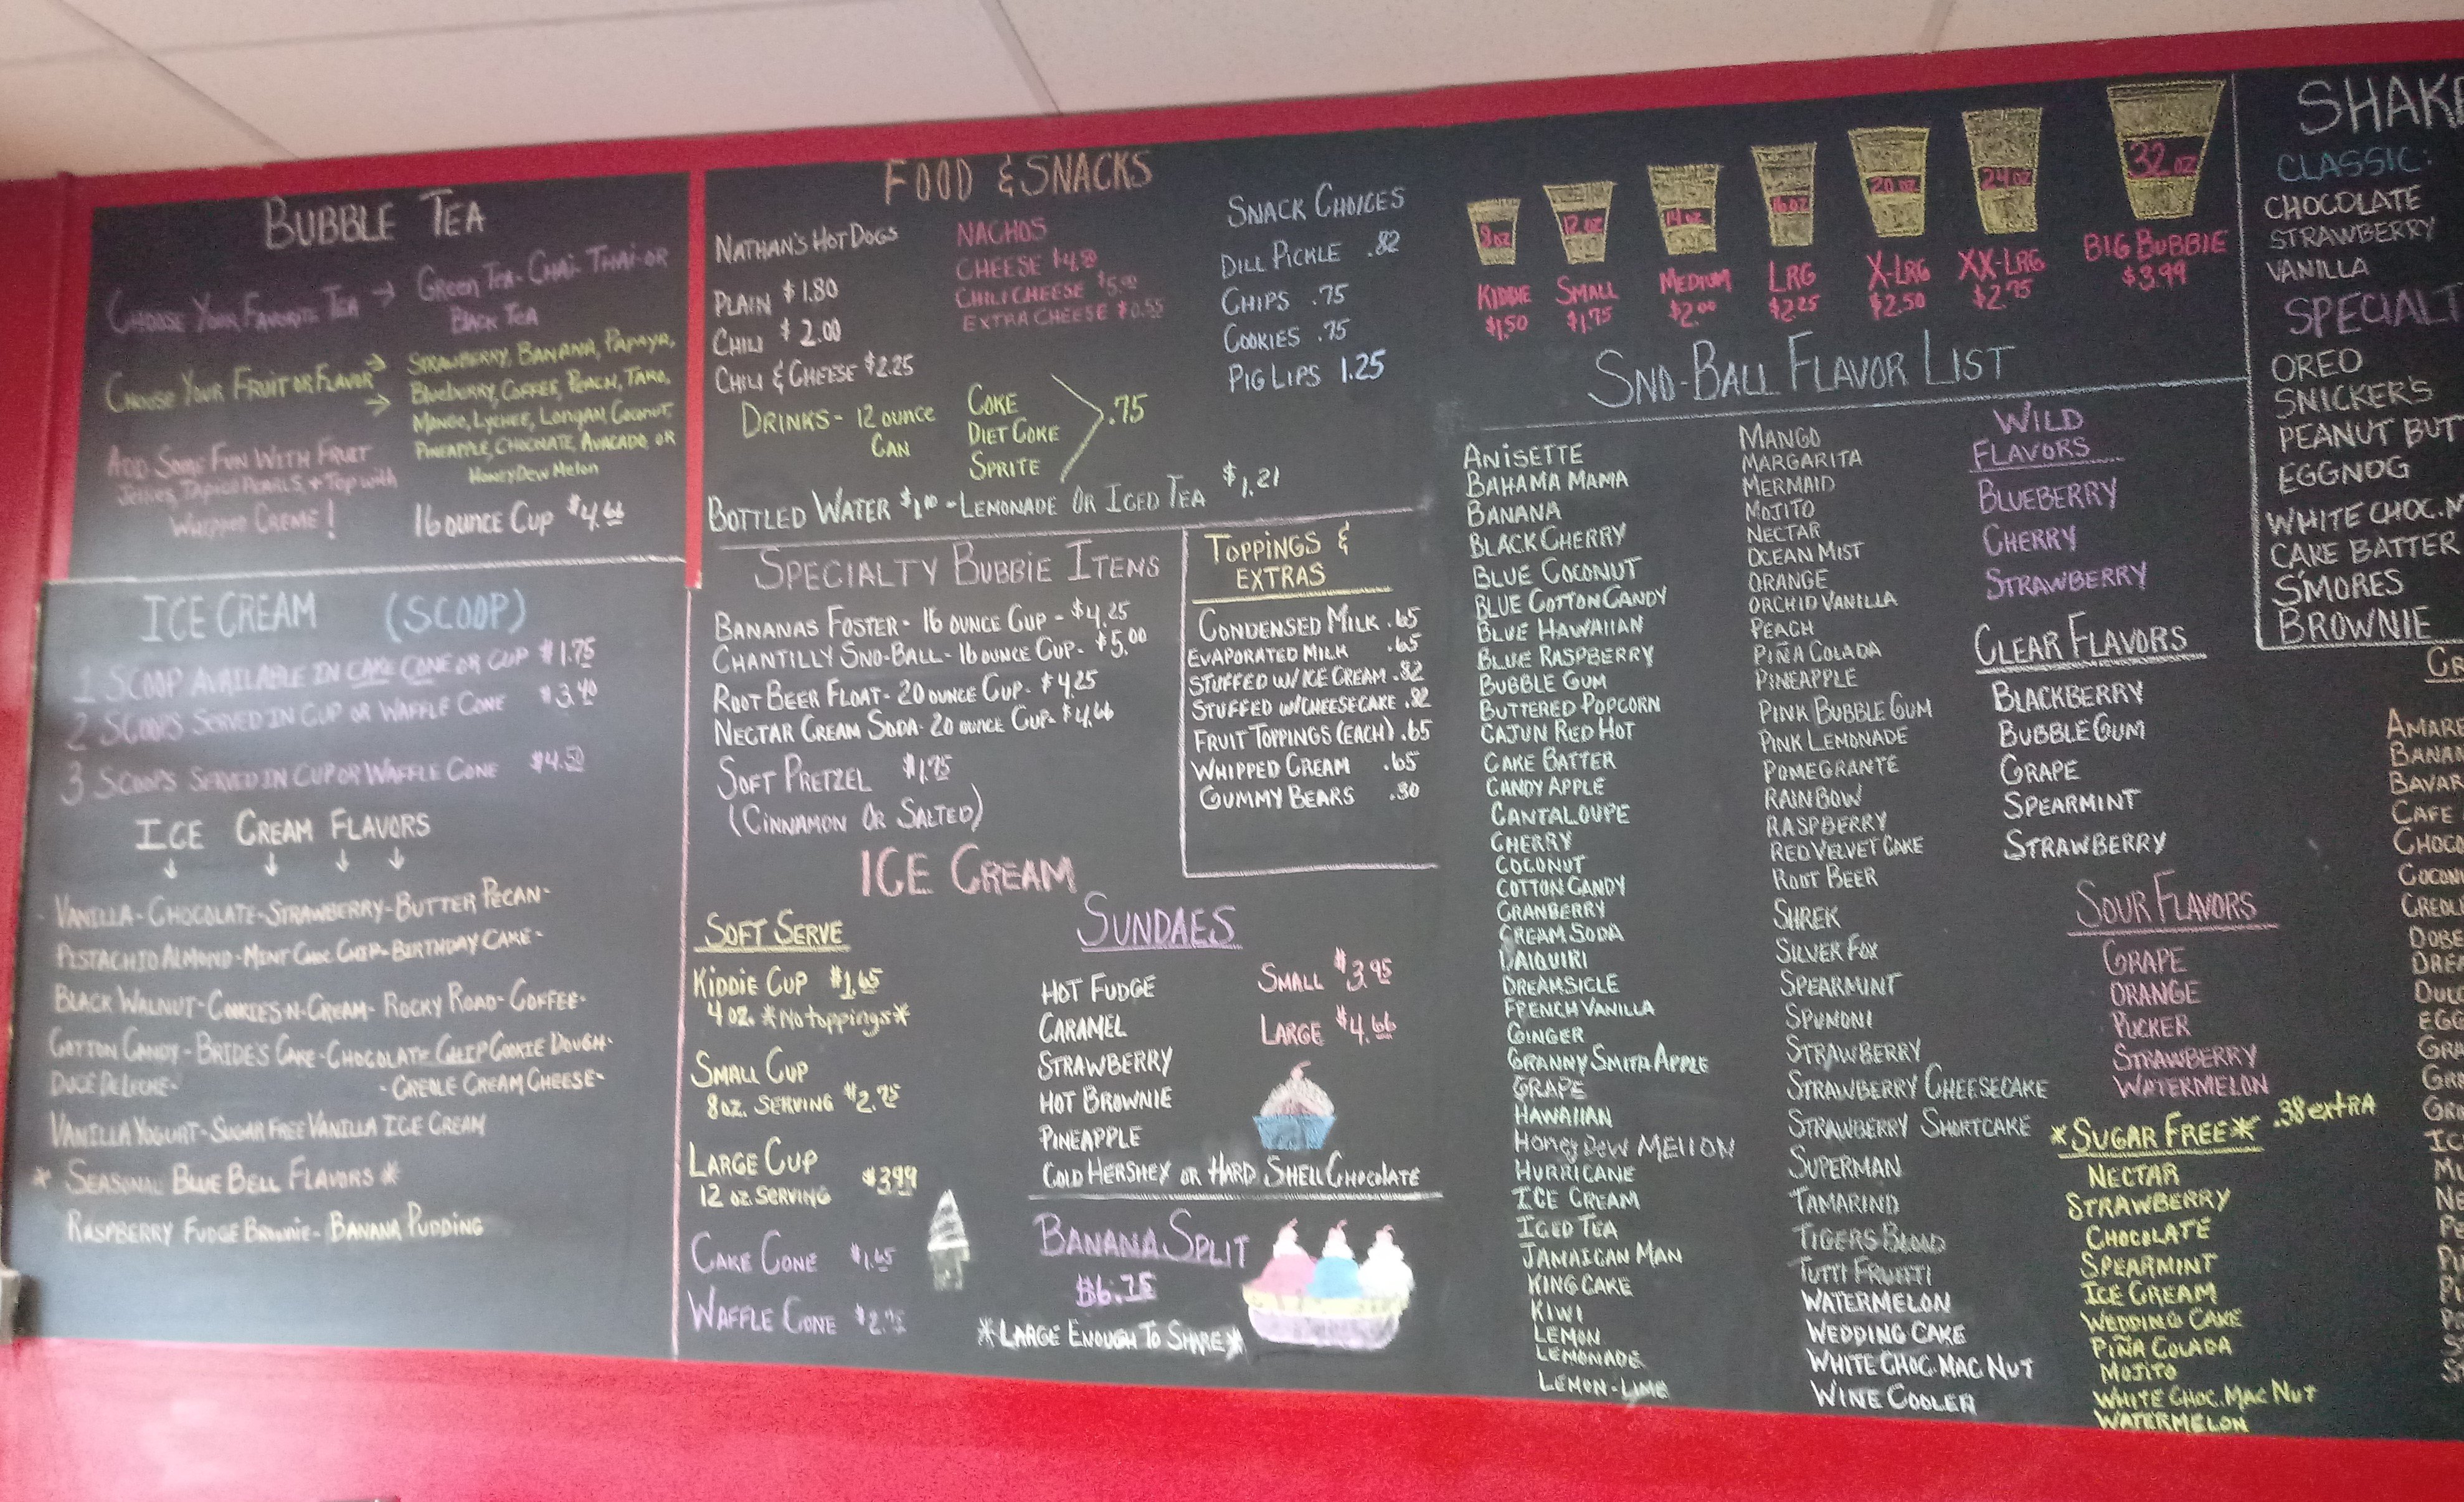 BUBBLE TEA
CHOOSE YOUR FAVORITE TEA → GREEN TEA- CHAI- THAI- OR
BLACK TEA
CHOOSE YOUR FRUIT OR FLAVOR → →
STRAWBERRY, BANANA, PAPAYA,
BLUEBERRY, COFFEE, PEACH, TARO,
MANGO, LYCHEE, LONGAN, COCONUT,
PINEAPPLE, CHOCOLATE, AVACADO, OR
HONEYDEW MELON
ADD SOME FUN WITH FRUIT
JELLIES, TAPIOCA PEARLS, + TOP WITH
WHIPPED CREME!
16 OUNCE CUP $4.66
ICE CREAM (SCOOP)
1 SCOOP AVAILABLE IN CAKE CONE OR CUP $1.75
2 SCOOPS SERVED IN CUP OR WAFFLE CONE $3.40
3 SCOOPS SERVED IN CUP OR WAFFLE CONE $4.50
ICE CREAM FLAVORS
↓ ↓ ↓ ↓
- VANILLA - CHOCOLATE - STRAWBERRY - BUTTER PECAN -
PISTACHIO ALMOND - MINT CHOC CHIP - BIRTHDAY CAKE -
BLACK WALNUT - COOKIES-N-CREAM - ROCKY ROAD - COFFEE -
COTTON CANDY - BRIDE'S CAKE - CHOCOLATE CHIP COOKIE DOUGH -
DUCE DE LECHE - - CREOLE CREAM CHEESE -
VANILLA YOGURT - SUGAR FREE VANILLA ICE CREAM
* SEASONAL BLUE BELL FLAVORS *
RASPBERRY FUDGE BROWNIE - BANANA PUDDING
FOOD & SNACKS
NATHAN'S HOT DOGS
PLAIN $1.80
CHILI $2.00
CHILI & CHEESE $2.25
NACHOS
CHEESE
CHILI CHEESE $5.00
EXTRA CHEESE $0.55
SNACK CHOICES
DILL PICKLE .82
CHIPS .75
COOKIES .75
PIG LIPS 1.25
DRINKS - 12 OUNCE
CAN
COKE
DIET COKE
SPRITE
.75
BOTTLED WATER $1.10 - LEMONADE OR ICED TEA $1.21
SPECIALTY BUBBIE ITEMS
BANANAS FOSTER - 16 OUNCE CUP - $4.25
CHANTILLY SNO-BALL - 16 OUNCE CUP - $5.00
ROOT BEER FLOAT - 20 OUNCE CUP - $4.25
NECTAR CREAM SODA - 20 OUNCE CUP - $4.66
SOFT PRETZEL $1.75
(CINNAMON OR SALTED)
TOPPINGS &
EXTRAS
CONDENSED MILK .65
EVAPORATED MILK .65
STUFFED W/ICE CREAM .82
STUFFED W/CHEESECAKE .82
FRUIT TOPPINGS (EACH) .65
WHIPPED CREAM .65
GUMMY BEARS .80
ICE CREAM
SOFT SERVE
KIDDIE CUP $1.65
4 OZ. *No toppings*
SMALL CUP
8 OZ. SERVING $2.75
LARGE CUP
12 OZ. SERVING $3.99
CAKE CONE $1.65
WAFFLE CONE $2.75
SUNDAES
HOT FUDGE
CARAMEL
STRAWBERRY
HOT BROWNIE
PINEAPPLE
COLD HERSHEY OR HARD SHELL CHOCOLATE
SMALL $3.95
LARGE $4.66
BANANA SPLIT
$6.75
*LARGE ENOUGH TO SHARE*
8 OZ 12 OZ 14 OZ 16 OZ 20 OZ 24 OZ 32 OZ
KIDDIE SMALL MEDIUM LRG X-LRG XX-LRG BIG BUBBIE
$1.50 $1.75 $2.00 $2.25 $2.50 $2.75 $3.99
SNO-BALL FLAVOR LIST
ANISETTE
BAHAMA MAMA
BANANA
BLACK CHERRY
BLUE COCONUT
BLUE COTTON CANDY
BLUE HAWAIIAN
BLUE RASPBERRY
BUBBLE GUM
BUTTERED POPCORN
CAJUN RED HOT
CAKE BATTER
CANDY APPLE
CANTALOUPE
CHERRY
COCONUT
COTTON CANDY
CRANBERRY
CREAM SODA
DAIQUIRI
DREAMSICLE
FRENCH VANILLA
GINGER
GRANNY SMITH APPLE
GRAPE
HAWAIIAN
HONEY DEW MELLON
HURRICANE
ICE CREAM
ICED TEA
JAMAICAN MAN
KING CAKE
KIWI
LEMON
LEMONADE
LEMON-LIME
MANGO
MARGARITA
MERMAID
MOJITO
NECTAR
OCEAN MIST
ORANGE
ORCHID VANILLA
PEACH
PIÑA COLADA
PINEAPPLE
PINK BUBBLE GUM
PINK LEMONADE
POMEGRANTE
RAINBOW
RASPBERRY
RED VELVET CAKE
ROOT BEER
SHREK
SILVER FOX
SPEARMINT
SPUMONI
STRAWBERRY
STRAWBERRY CHEESECAKE
STRAWBERRY SHORTCAKE
SUPERMAN
TAMARIND
TIGERS BLOOD
TUTTI FRUITTI
WATERMELON
WEDDING CAKE
WHITE CHOC. MAC NUT
WINE COOLER
WILD
FLAVORS
BLUEBERRY
CHERRY
STRAWBERRY
CLEAR FLAVORS
BLACKBERRY
BUBBLE GUM
GRAPE
SPEARMINT
STRAWBERRY
SOUR FLAVORS
GRAPE
ORANGE
PUCKER
STRAWBERRY
WATERMELON
*SUGAR FREE* .38 extra
NECTAR
STRAWBERRY
CHOCOLATE
SPEARMINT
ICE CREAM
WEDDING CAKE
PIÑA COLADA
MOJITO
WHITE CHOC. MAC NUT
WATERMELON
SHAK
CLASSIC:
CHOCOLATE
STRAWBERRY
VANILLA
SPECIALT
OREO
SNICKER'S
PEANUT BUT
EGGNOG
WHITE CHOC. M
CAKE BATTER
S'MORES
BROWNIE
AMAR
BANAN
BAVAR
CAFE
CHOCO
COCON
CREOL
DOBE
DREA
DULC
EGG
GRA